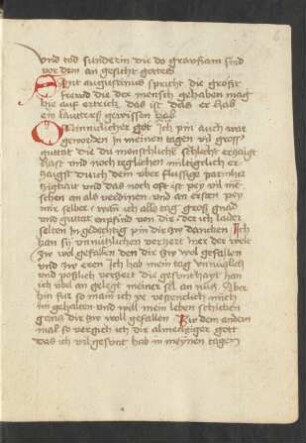 und tod sunderin die do grausam sind
vor dem an gesicht gottes
Sant augustinus spricht die grost
freud die der mensch gehaben mag
hie auf ertrich das ist das er hab
ein lautters gewissen hab
O mynnicklicher got Ich pin auch war
geworden in meinen tagen vil grosz
gutat die du menschliche schlecht erzaigt
hast und noch teglichen miltigklich er
zaigst durch dein uber flussige parmher
tzigkait und das noch oft ist pey vil me
schen an als verdinen und an ersten pey
mir selber wan ich alle tag gros gnad
und guttat enpfind von dir der ich lauder
selten in gedechtig pin die Ich
han sy unnutzlichen verzert mer der welt
zu wol gefallen den dir zw wol gefallen
und zw eren Ich hab mein tag unnutzlich
und poslich verzert die gesunthayt han
ich ubel an gelegt meiner sel an nutz Aber
hin fur so main ich
im gehalten und will mein leben schicken
gotes dir zw woll gefallen Zw dem andern
mal so vergich ich dir almechtiger gott
das ich vil gesunt hab in meynen tagen